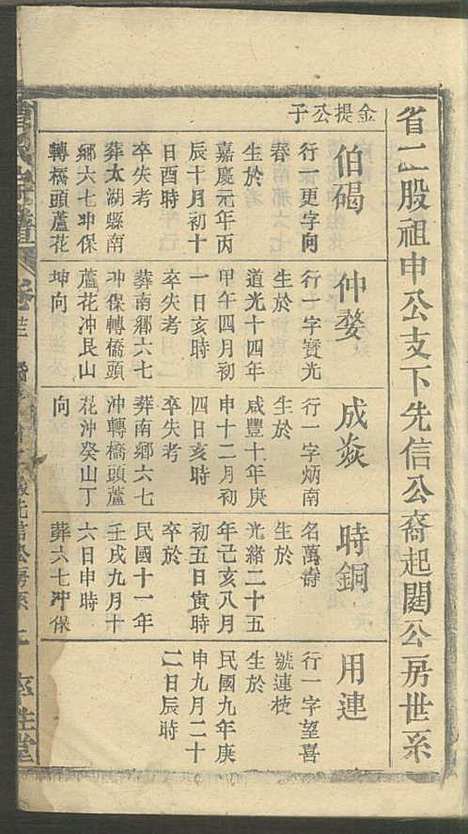 省二股祖申公支下先信公裔起閎公房世系
金提公子
伯碣
行一更字向
春
生於
嘉慶元年丙
辰十月初十
日酉時
卒失考
葬太湖縣南
鄉六七冲保
轉橋頭蘆花
仲婺
行一字寶光
生於
道光十四年
甲午四月初
一日亥時
卒失考
葬南鄉六七
冲保轉僑頭
蘆花冲艮山
坤向
成焱
行一字炳南
生於
咸豐十年庚
申十二月初
四日亥時
卒失考
葬南鄉六七
冲轉橋頭蘆
花冲癸山丁
向
時銅
名萬
生於
光緒二十五
年己亥八月
初五日寅時
卒於
民國十一年
壬戌九月十
六日申時
葬六七冲保
用連
行一字望喜
號連枝
生於
民國九年庚
申九月二十
二日辰時